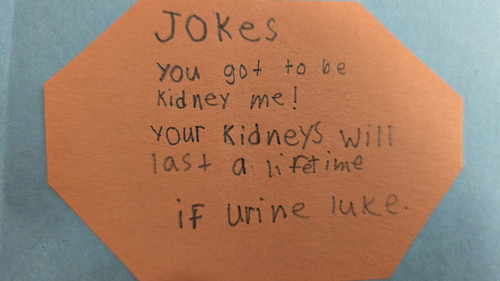 JOKes
you got to be
kidney me!
your kidneys will
last a lifetime
if urine luke.